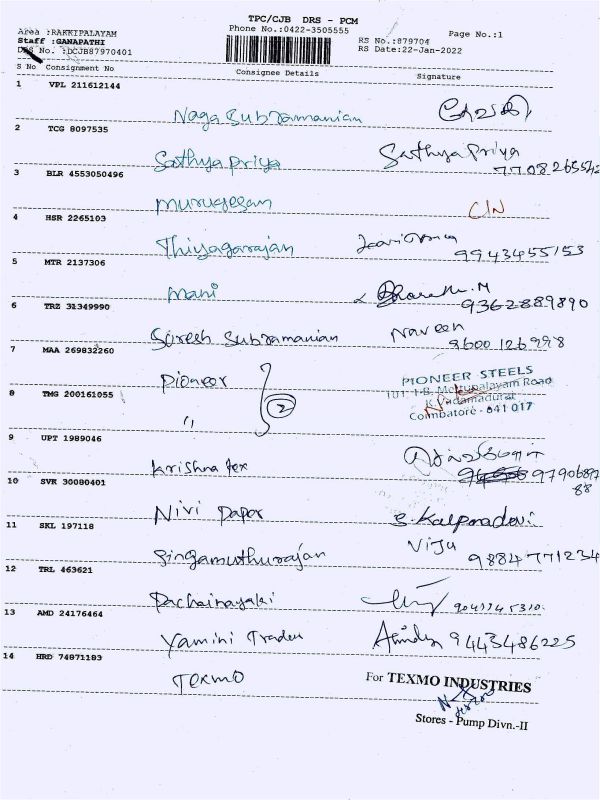 TPC/CJB DRS - PCM
Area :RAKKIPALAYAM
Phone No.:0422-3505555
Page No.:1
Staff :GANAPATHI
RS No.:879704
DRS No. :DCJB87970401
RS Date:22-Jan-2022
S No Consignment No Consignee Details Signature
1 VPL 211612144
Naga Subramanian
2 TCG 8097535
Sathya Priya Sathya Priya
7708265542
3 BLR 4553050496
Murugesan
4 HSR 2265103
Thiyagarajan
9943455153
5 MTR 2137306
Mani Bharath. M
9362889890
6 TRZ 31349990
Suresh Subramanian Naveen
9600126998
7 MAA 269832260
Pioneer
PIONEER STEELS
101, 1-B, Mettupalayam Road
K.Vadamadurai
Coimbatore - 641 017
8 TMG 200161055
" 2
9 UPT 1989046
Krishna tex
10 SVR 30080401
Nivi Paper S. Kalpanadevi
11 SKL 197118
Singamuthurajan Viju
9884771234
12 TRL 463621
Pachainayaki
13 AMD 24176464
Yamini Traders
9443486225
14 HRD 74871183
Texmo
For TEXMO INDUSTRIES
Stores - Pump Divn.-II